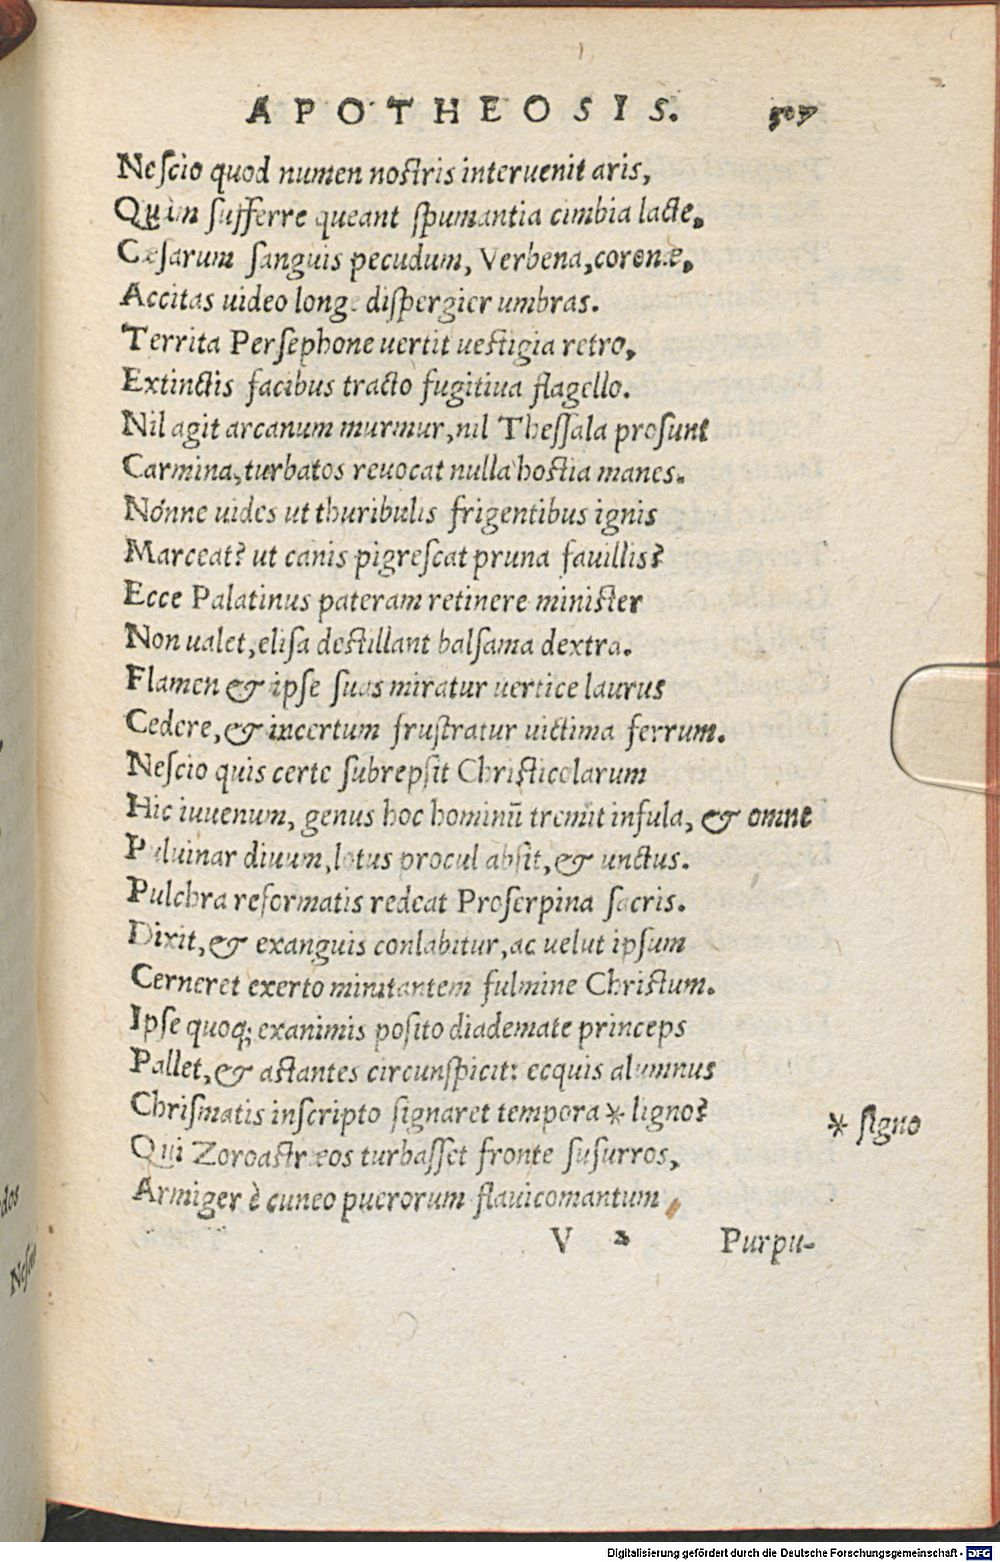 APOTHEOSIS. 307
Nescio quod numen nostris interuenit aris,
Quàm sufferre queant spumantia cimbia lacte,
Cæsarum sanguis pecudum, Verbena, coronæ,
Accitas uideo longe dispergier umbras.
Territa Persephone uertit uestigia retro,
Extinctis facibus tracto fugitiua flagello.
Nil agit arcanum murmur, nil Thessala prosunt
Carmina, turbatos reuocat nulla hostia manes.
Nónne uides ut thuribulis frigentibus ignis
Marceat? ut canis pigrescat pruna fauillis?
Ecce Palatinus pateram retinere minister
Non ualet, elisa destillant balsama dextra.
Flamen & ipse suas miratur uertice laurus
Cedere, & incertum frustratur uictima ferrum.
Nescio quis certe subrepsit Christicolarum
Hic iuuenum, genus hoc hominū tremit insula, & omne
Puluinar diuum, lotus procul absit, & unctus.
Pulchra reformatis redeat Proserpina sacris.
Dixit, & exanguis conlabitur, ac uelut ipsum
Cerneret exerto minitantem fulmine Christum.
Ipse quoq; exanimis posito diademate princeps
Pallet, & astantes circunspicit: ecquis alumnus
Chrismatis inscripto signaret tempora * ligno?
* signo
Qui Zoroastræos turbasset fronte susurros,
Armiger è cuneo puerorum flauicomantum,
V 2 Purpu-
dos
Nesci
Digitalisierung gefördert durch die Deutsche Forschungsgemeinschaft - DFG